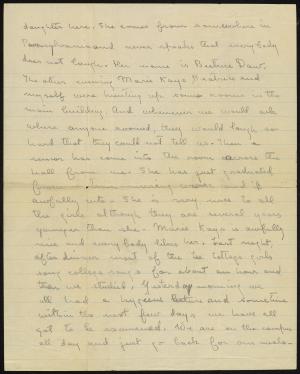 daughter here. She comes from somewhere in
Pennsylvania and never speaks that everybody
does not laugh. Her name is Beatrice Daw.
The other evening Marie Kays Beatrice and
myself were hunting up some rooms in the
main building. And whenever we would ask
where anyone roomed, they would laugh so
hard that they could not tell us. Then a
senior has come into the room across the
hall from me. She has just graduated
from nursing and is
awfully cute. She is very nice to all
the girls although they are several years
younger than she. Marie Kays is awfully
nice and everybody likes her. Last night,
after dinner most of the college girls
sang college songs for about an hour and
then we studied. Yesterday morning we
all had a hygiene lecture and sometime
within the next few days we have all
got to be examined. We are on the campus
all day and just go back for our meals.